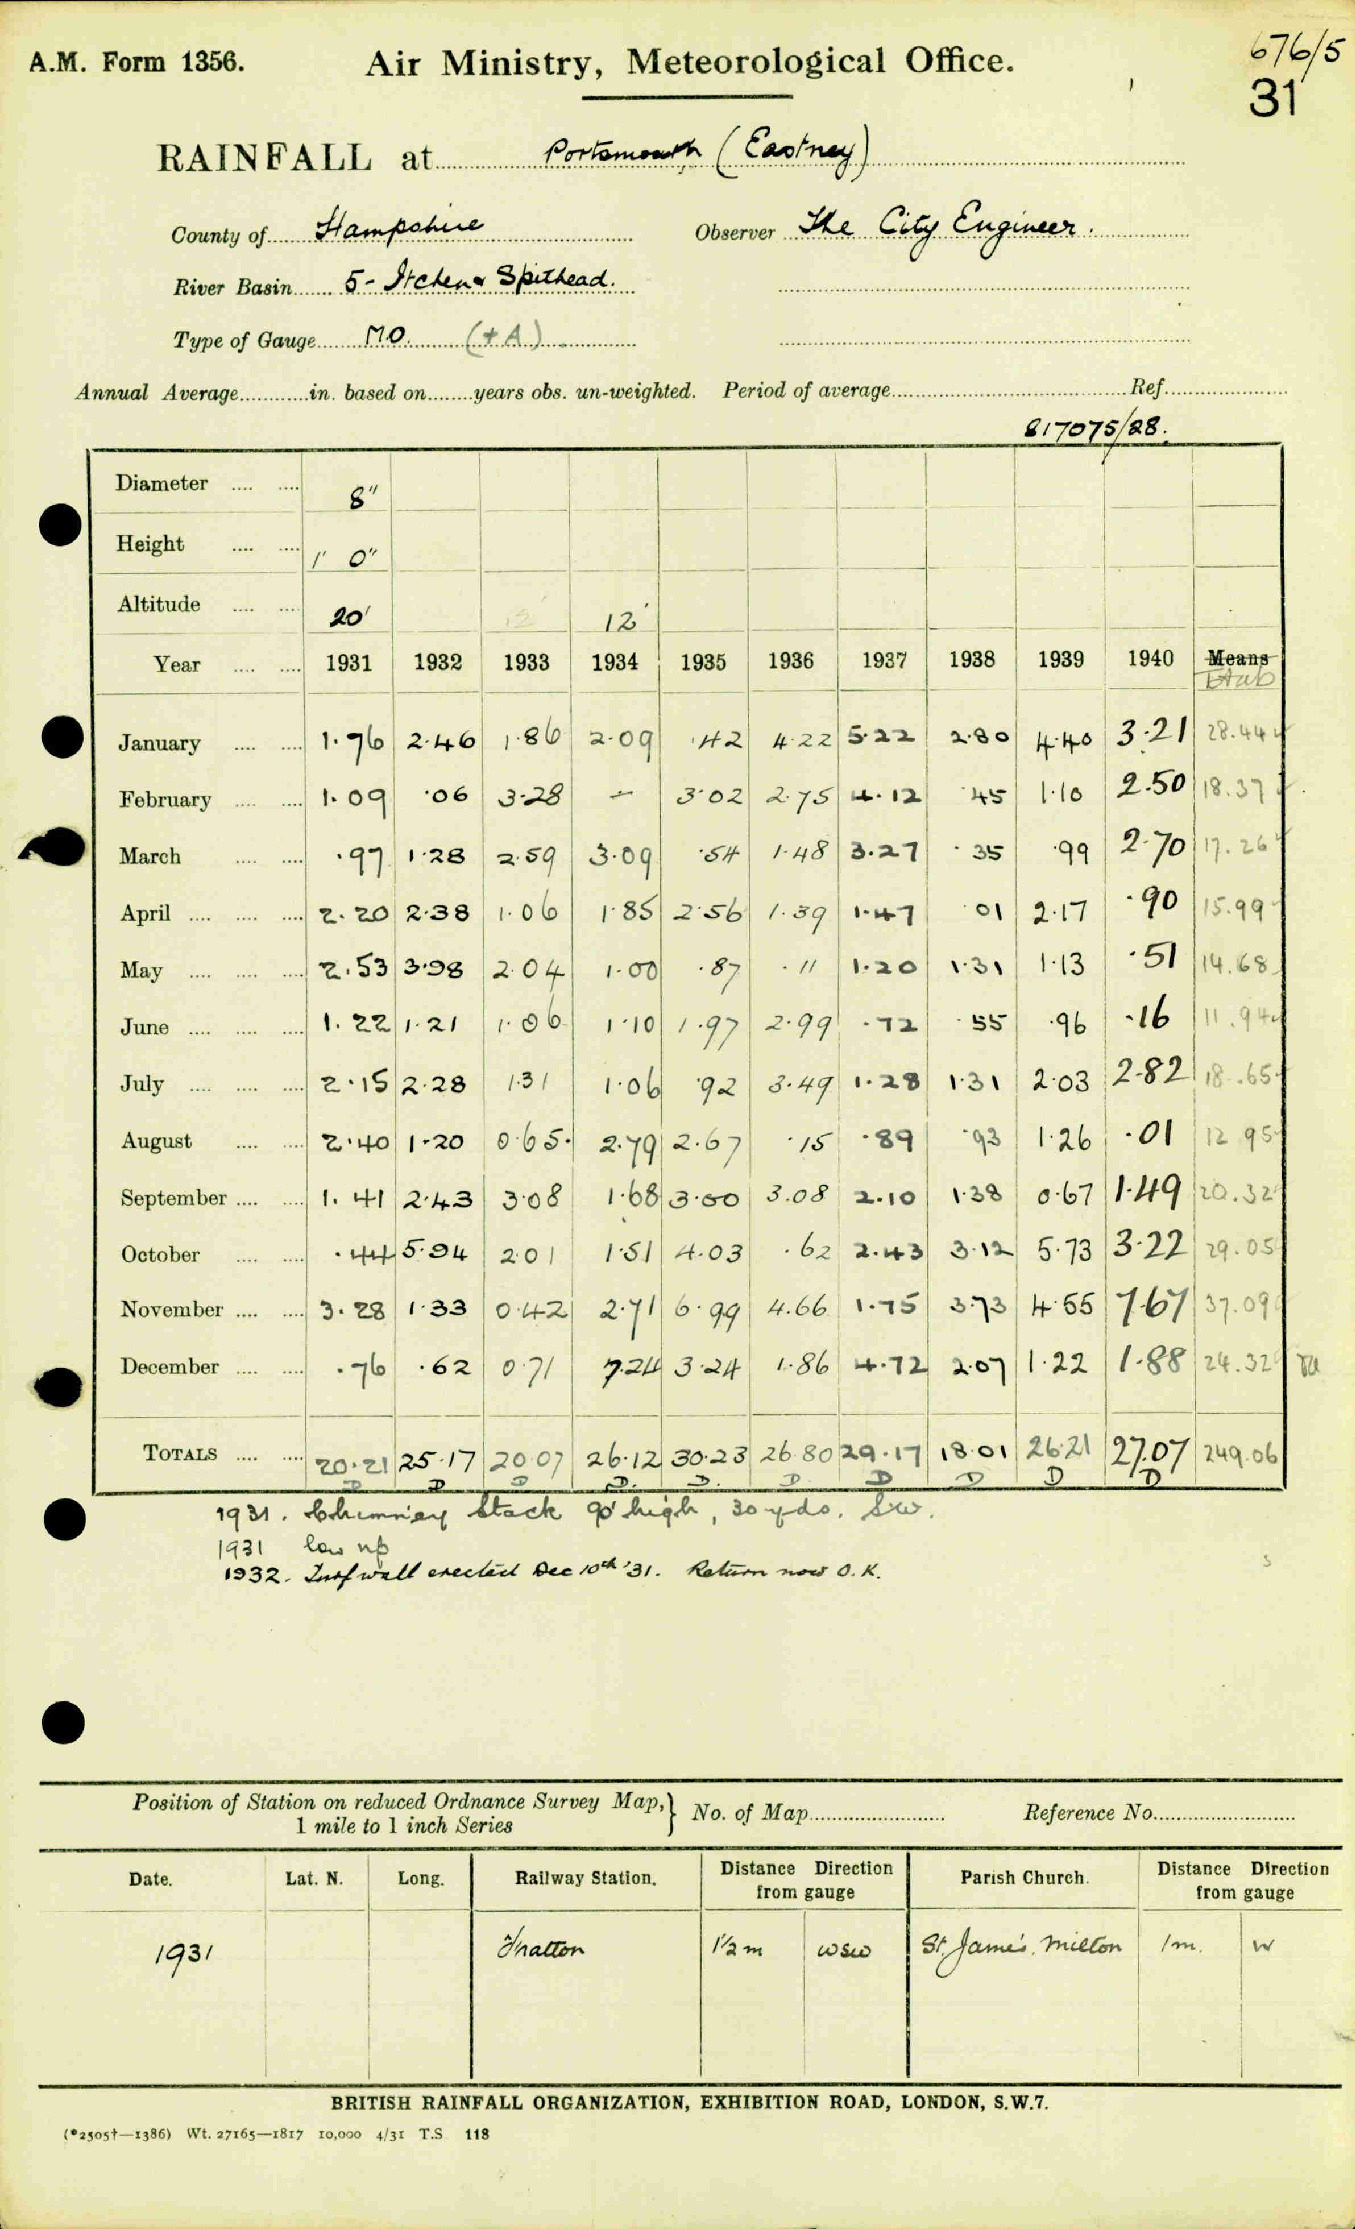 A.M. Form 1356. Air Ministry, Meteorological Office. 676/5
31
RAINFALL at Portsmouth (Eastney)
County of Hampshire Observer The City Engineer.
River Basin 5- Itchen & Spithead.
Type of Gauge M.O. (+A)
Annual Average in. based on years obs. un-weighted. Period of average Ref.
817075/28.
Diameter 8"
Height 1' 0"
Altitude 20' 12' 12'
Year 1931 1932 1933 1934 1935 1936 1937 1938 1939 1940 Means
Totals
January 1.76 2.46 1.86 2.09 .42 4.22 5.22 2.80 4.40 3.21 28.44
February 1.09 .06 3.28 - 3.02 2.75 4.12 .45 1.10 2.50 18.37
March .97 1.28 2.59 3.09 .54 1.48 3.27 .35 .99 2.70 17.26
April 2.20 2.38 1.06 1.85 2.56 1.39 1.47 .01 2.17 .90 15.99
May 2.53 3.98 2.04 1.00 .87 .11 1.20 1.31 1.13 .51 14.68
June 1.22 1.21 1.06 1.10 1.97 2.99 .72 .55 .96 .16 11.94
July 2.15 2.28 1.31 1.06 .92 3.49 1.28 1.31 2.03 2.82 18.65
August 2.40 1.20 0.65 2.79 2.67 .15 .89 .93 1.26 .01 12.95
September 1.41 2.43 3.08 1.68 3.00 3.08 2.10 1.38 0.67 1.49 20.32
October .44 5.94 2.01 1.51 4.03 .62 2.43 3.12 5.73 3.22 29.05
November 3.28 1.33 0.42 2.71 6.99 4.66 1.75 3.73 4.55 7.67 37.09
December .76 .62 0.71 7.24 3.24 1.86 4.72 2.07 1.22 1.88 24.32
TOTALS 20.21 25.17 20.07 26.12 30.23 26.80 29.17 18.01 26.21 27.07 249.06
D D D D. D. D. D D D D
1931. Chimney Stack 90' high, 30 yds. SW.
1931 low up
1932. Turf wall erected Dec 10th '31. Return now O.K.
Position of Station on reduced Ordnance Survey Map, No. of Map Reference No.
1 mile to 1 inch Series
Date. Lat. N. Long. Railway Station. Distance Direction from gauge Parish Church. Distance Direction from gauge
1931 Fratton 1½ m WSW St. James's, Milton 1m. W
BRITISH RAINFALL ORGANIZATION, EXHIBITION ROAD, LONDON, S.W.7.
(*2505†—1386) Wt. 27165—1817 10,000 4/31 T.S 118